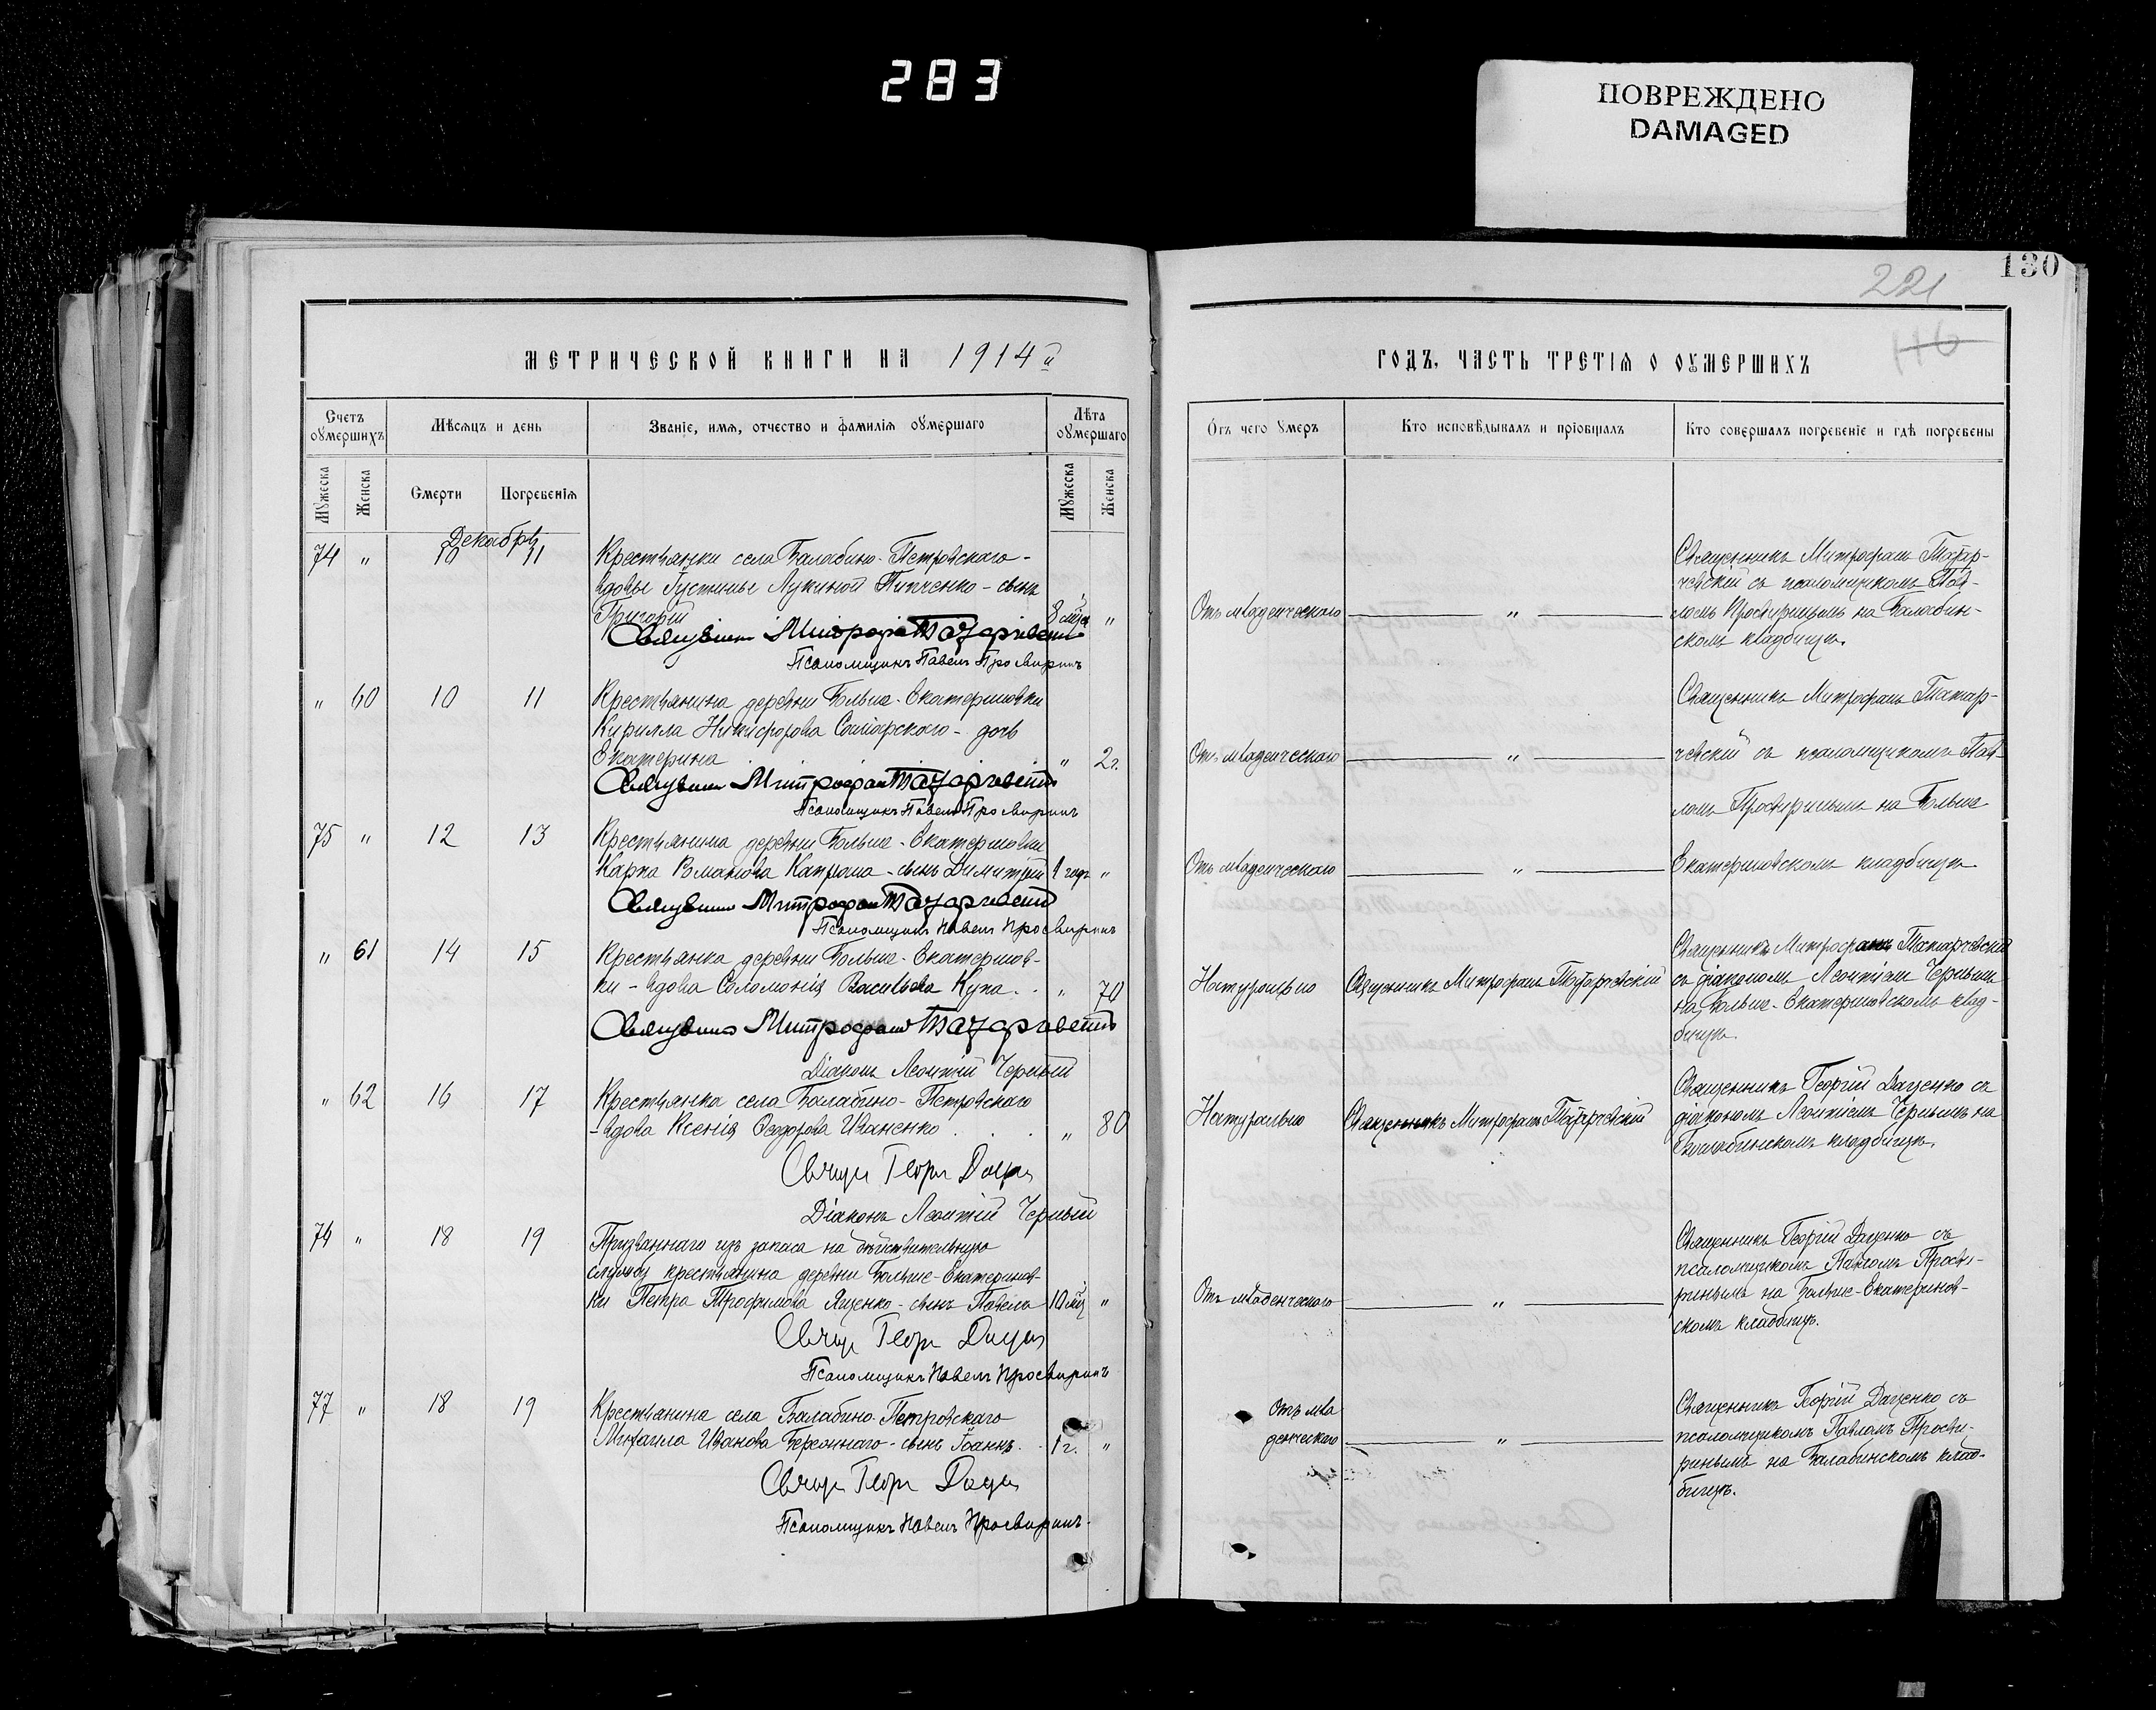 283
ПОВРЕЖДЕНО
DAMAGED
130
221
116
МЕТРИЧЕСКОЙ КНИГИ НА 1914й
ГОДЪ, ЧАСТЬ ТРЕТІѦ О ОУМЕРШИХЪ
Счетъ оумершихъ
Мѣсяцъ и день
Званіе, имя, отчество и фамилія оумершаго
Лѣта оумершаго
Отъ чего умеръ
Кто исповѣдывалъ и пріобщалъ
Кто совершалъ погребеніе и гдѣ погребены
Мужеска
Женска
Смерти
Погребенія
Мужеска
Женска
Декабрь
74 " 10 11 Крестьянки села Балабино-Петровскаго -
вдовы Густиньи Лукиной Пипченко - сынъ
Григорій 8 мѣс. "
Отъ младенческаго "
Священникъ Митрофанъ Татар-
чевскій съ псаломщикомъ Пав-
ломъ Просвиринымъ на Балабин-
скомъ кладбищѣ.
Священникъ Митрофанъ Татарчевскій
Псаломщикъ Павелъ Просвиринъ
" 60 10 11 Крестьянина деревни Больше-Екатериновки
Кирилла Никифорова Самарского - дочь
Екатерина " 2 г.
Отъ младенческаго "
Священникъ Митрофанъ Татар-
чевскій съ псаломщикомъ Пав-
ломъ Просвиринымъ на Больше
Священникъ Митрофанъ Татарчевскій
Псаломщикъ Павелъ Просвиринъ
75 " 12 13 Крестьянина деревни Больше-Екатериновки
Карпа Романова - сынъ Димитрій 1 годъ "
Отъ младенческаго "
Екатериновскомъ кладбищѣ
Священникъ Митрофанъ Татарчевскій
Псаломщикъ Павелъ Просвиринъ
" 61 14 15 Крестьянка деревни Больше-Екатеринов-
ки - вдова Соломонія Васильева Купа . . " 70
Натурально
Священникъ Митрофанъ Татарчевскій
Священникъ Митрофанъ Татарчевскій
съ діакономъ Леонтіемъ Чернымъ
на Больше-Екатериновскомъ клад-
бищѣ.
Священникъ Митрофанъ Татарчевскій
Діаконъ Леонтій Черный
" 62 16 17 Крестьянка села Балабино-Петровскаго
- вдова Ксенія Ѳеодорова Иваненко . . . " 80
Натурально
Священникъ Митрофанъ Татарчевскій
Священникъ Георгій Даценко съ
діакономъ Леонтіемъ Чернымъ на
Балабинскомъ кладбищѣ.
Свящ. Георг. Даценко
Діаконъ Леонтій Черный
76 " 18 19 Призваннаго изъ запаса на дѣйствительную
службу крестьянина деревни Больше-Екатеринов-
ки Петра Трофимова Яценко - сынъ Павелъ 10 мѣс "
Отъ младенческаго "
Священникъ Георгій Даценко съ
псаломщикомъ Павломъ Просви-
ринымъ на Больше-Екатеринов-
скомъ кладбищѣ.
Свящ. Георг. Даценко
Псаломщикъ Павелъ Просвиринъ
77 " 18 19 Крестьянина села Балабино-Петровскаго
Михаила Иванова - сынъ Іоаннъ . . 1 г. "
Отъ мла
денческаго "
Священникъ Георгій Даценко съ
псаломщикомъ Павломъ Просви-
ринымъ на Балабинскомъ клад-
бищѣ.
Свящ. Георг. Даценко
Псаломщикъ Павелъ Просвиринъ.